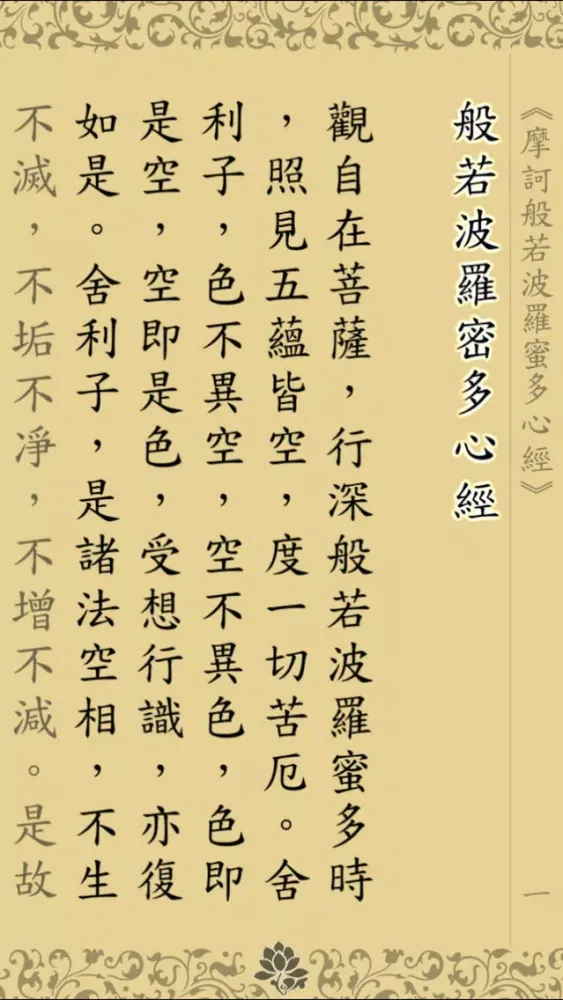 《摩訶般若波羅蜜多心經》
一
般若波羅密多心經
觀自在菩薩，行深般若波羅蜜多時
，照見五蘊皆空，度一切苦厄。舍
利子，色不異空，空不異色，色即
是空，空即是色，受想行識，亦復
如是。舍利子，是諸法空相，不生
不滅，不垢不凈，不增不減。是故